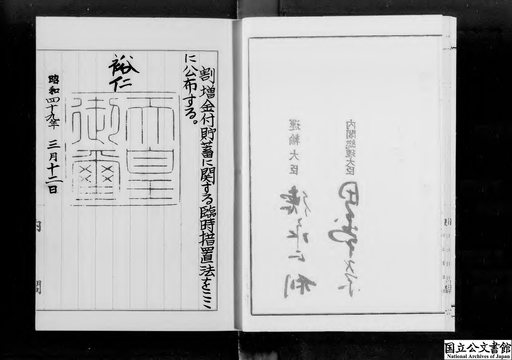 内閣総理大臣
田中角榮
運輸大臣
割増金付貯蓄に関する臨時措置法をここ
に公布する。
裕仁
天皇
御璽
昭和四十九年 三月十二日
内閣
国立公文書館
National Archives of Japan